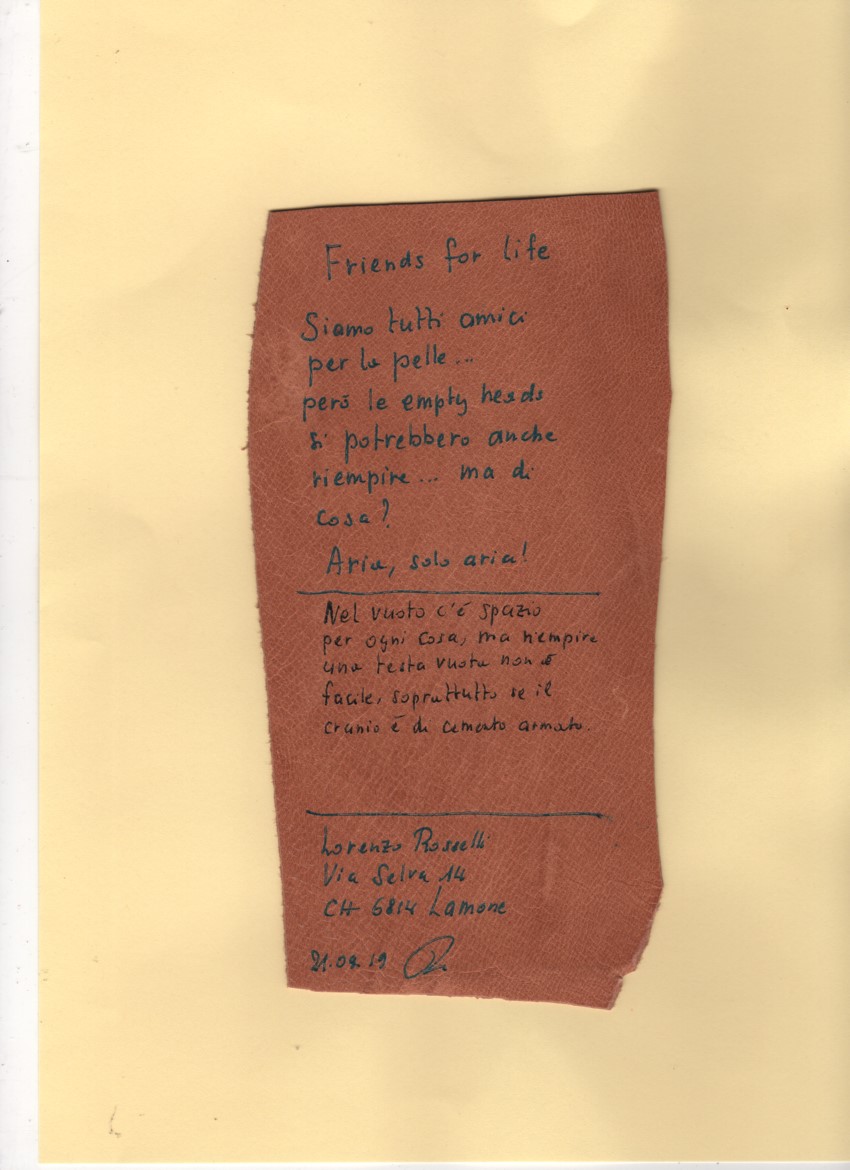 Friends for life
Siamo tutti amici
per la pelle...
però le empty heads
si potrebbero anche
riempire... ma di
cosa?
Aria, solo aria!
Nel vuoto c'è spazio
per ogni cosa, ma riempire
una testa vuota non è
facile, soprattutto se il
cranio è di cemento armato.
Lorenzo Rosselli
Via Selva 14
CH 6814 Lamone